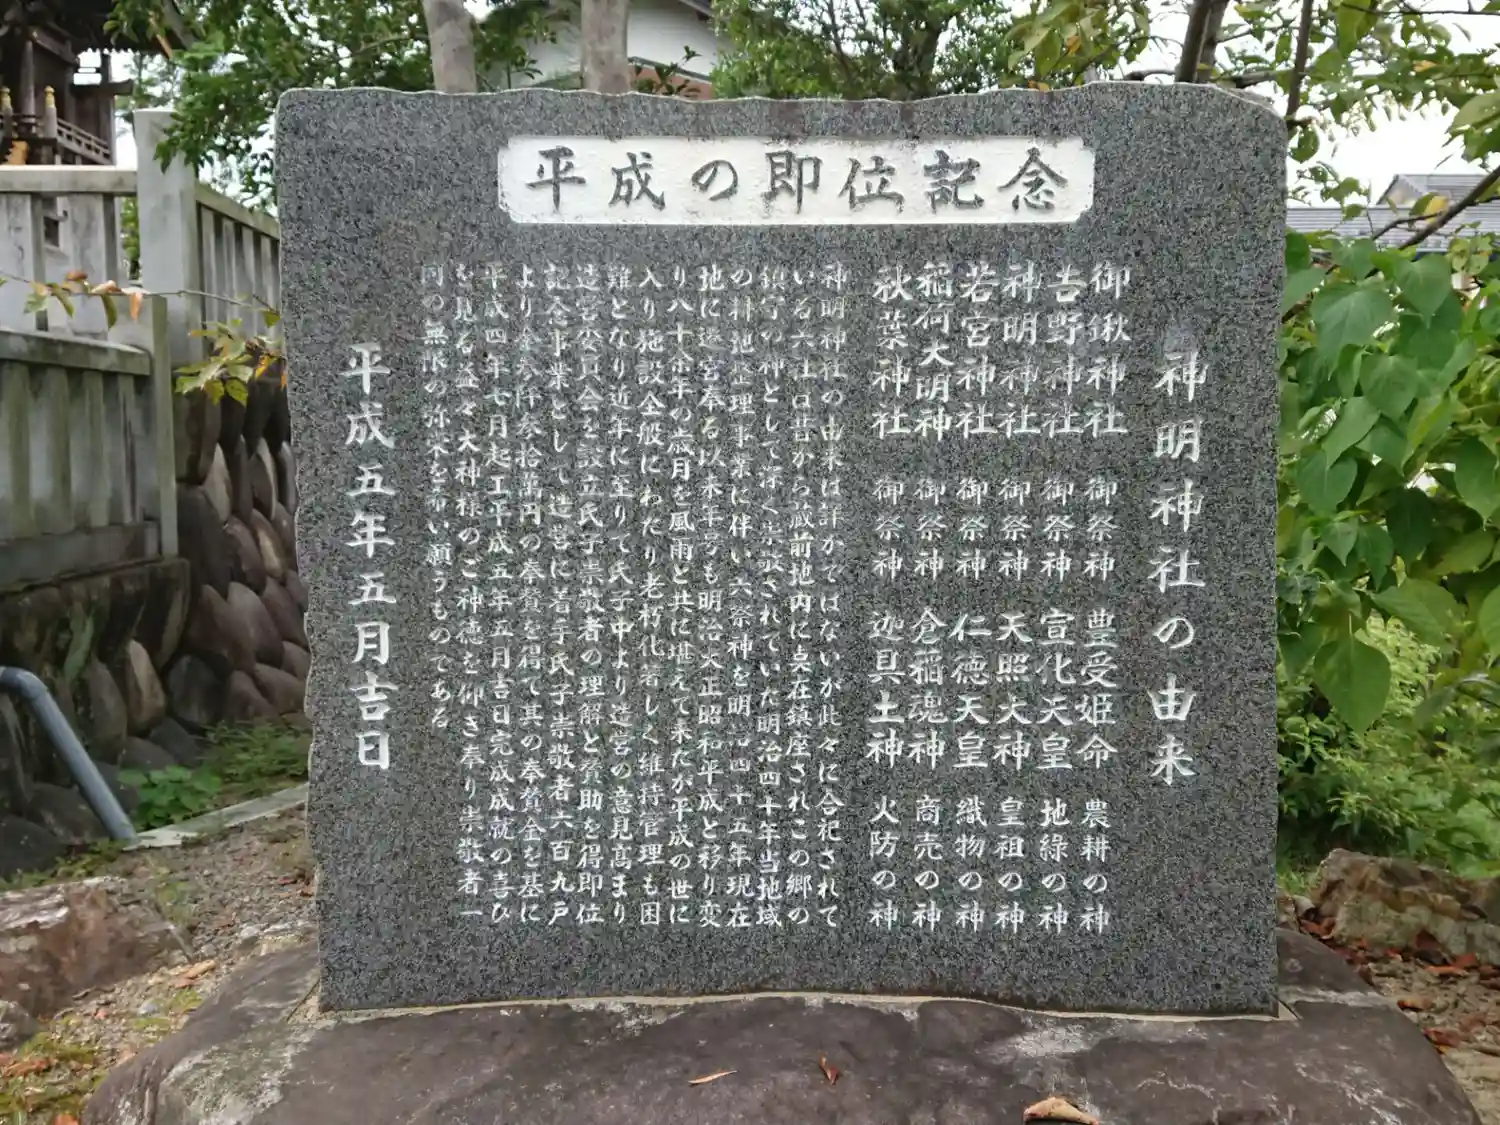 平成の即位記念
神明神社の由来
御鍬神社 御祭神 豊受姫命 農耕の神
吉野神社 御祭神 宣化天皇 地緑の神
神明神社 御祭神 天照大神 皇祖の神
若宮神社 御祭神 仁徳天皇 織物の神
稲荷大明神 御祭神 倉稲魂神 商売の神
秋葉神社 御祭神 迦具土神 火防の神
神明神社の由来は詳かではないが此々に合祀されて
いる六社は昔から蔵前地内に点在鎮座されこの郷の
鎮守の神として深く崇敬されていた明治四十年当地域
の耕地整理事業に伴い六祭神を明治四十五年現在
地に造宮奉る以来年号も明治大正昭和平成と移り変
り八十余年の歳月を風雨と共に堪えて来たが平成の世に
入り施設全般にわたり老朽化著しく維持管理も困
難となり近年に至りて氏子中より造営の意見高まり
造宮委員会を設立氏子崇敬者の理解と賛助を得即位
記念事業として造営に着手氏子崇敬者六百九戸
より金参仟参拾萬円の奉賛を得て其の奉賛金を基に
平成四年七月起工平成五年五月吉日完成成就の喜び
を見る益々大神様のご神徳を仰き奉り崇敬者一
同の無限の弥栄を希い願うものである
平成五年五月吉日